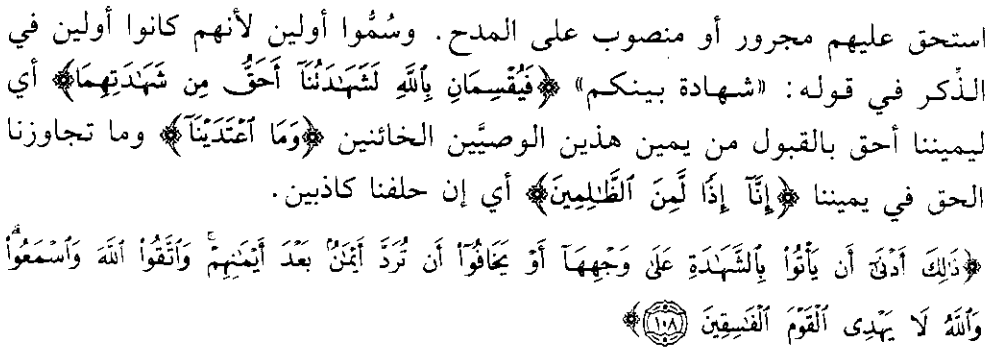 استحق عليهم مجرور أو منصوب على المدح. وسُمُّوا أولين لأنهم كانوا أولين في
الذِّكر في قوله: «شهادة بينكم» ﴿فَيُقْسِمَانِ بِٱللَّهِ لَشَهَـٰدَتُنَآ أَحَقُّ مِن شَهَـٰدَتِهِمَا﴾ أي
ليميننا أحق بالقبول من يمين هذين الوصيَّين الخائنين ﴿وَمَا ٱعْتَدَيْنَآ﴾ وما تجاوزنا
الحق في يميننا ﴿إِنَّآ إِذًا لَّمِنَ ٱلظَّـٰلِمِينَ﴾ أي إن حلفنا كاذبين.
﴿ذَٰلِكَ أَدْنَىٰٓ أَن يَأْتُوا۟ بِٱلشَّهَـٰدَةِ عَلَىٰ وَجْهِهَآ أَوْ يَخَافُوٓا۟ أَن تُرَدَّ أَيْمَـٰنٌۢ بَعْدَ أَيْمَـٰنِهِمْ ۗ وَٱتَّقُوا۟ ٱللَّهَ وَٱسْمَعُوا۟ ۗ
وَٱللَّهُ لَا يَهْدِى ٱلْقَوْمَ ٱلْفَـٰسِقِينَ ١٠٨﴾